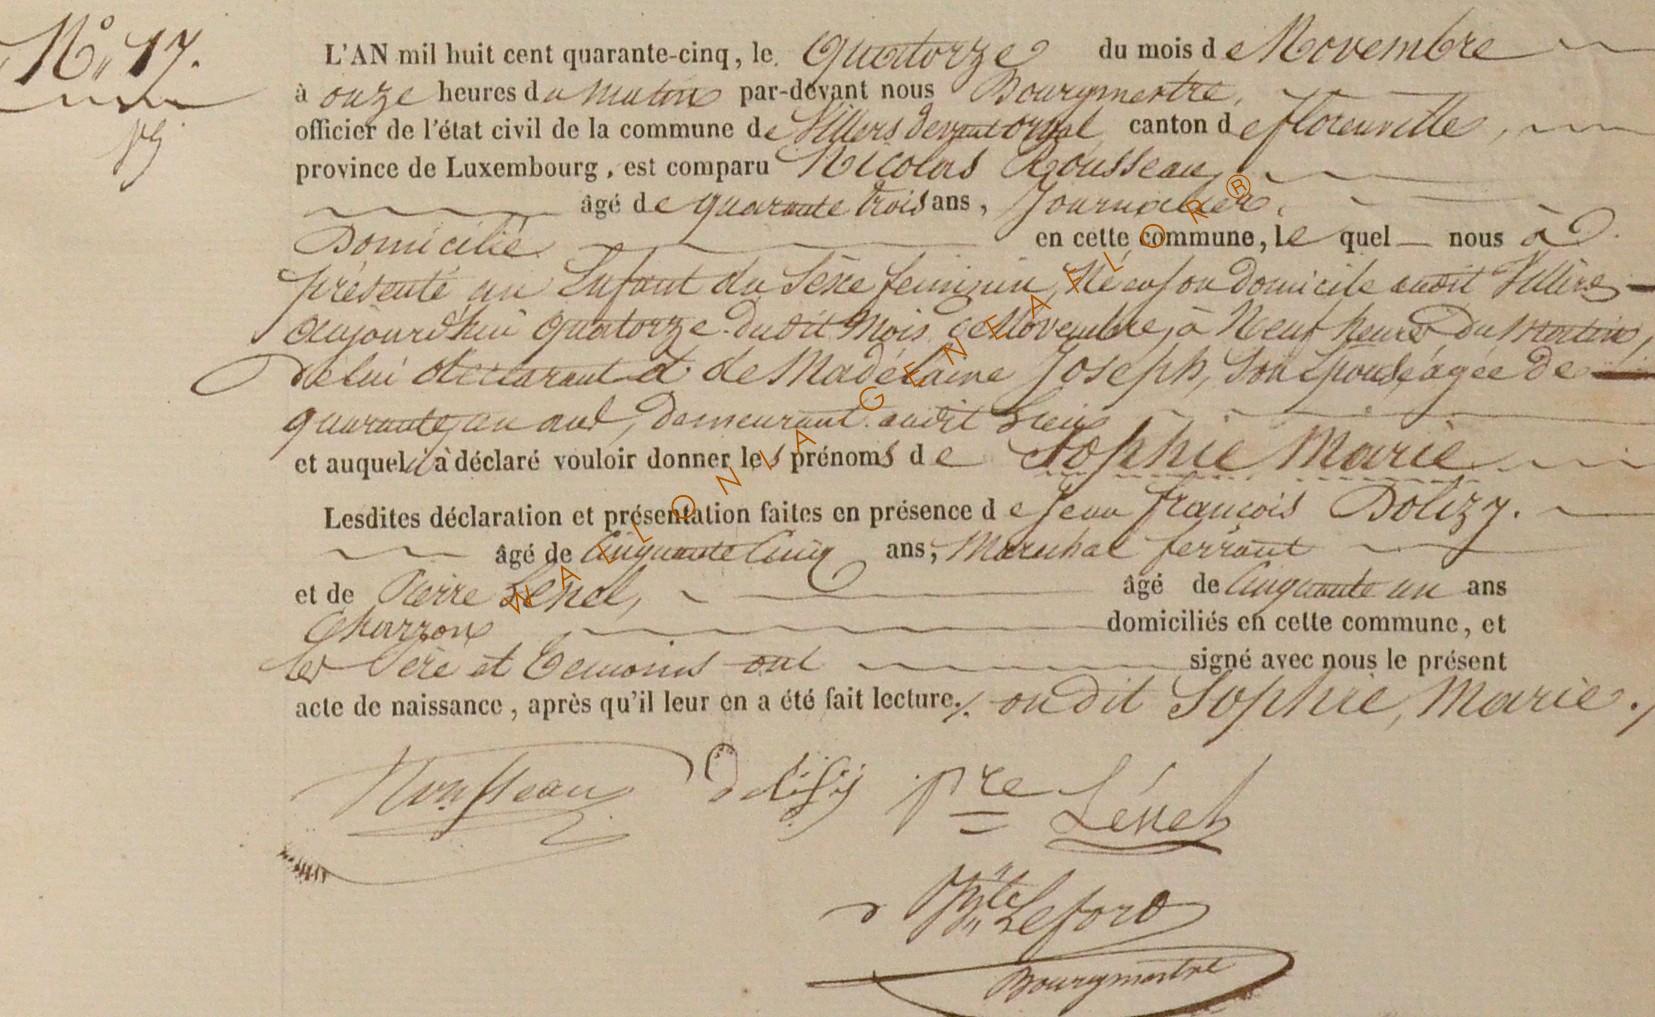 N° 17.
L'AN mil huit cent quarante-cinq, le Quatorze du mois de Novembre
à onze heures du Matin par-devant nous Bourgmestre,
officier de l'état civil de la commune de Villers devant orval canton de florenville,
province de Luxembourg, est comparu Nicolas Rousseau,
âgé de quarante trois ans, Journalier,
Domicilié en cette commune, le quel nous à
présenté un Enfant du Sèxe feminin, Né en son Domicile audit Villers
aujourd'hui quatorze dudit Mois de Novembre, à Neuf heures Du Matin,
De lui déclarant et de Madélaine Joseph, Son Epouse, âgée De
quarante un ans, Demeurant audit Lieu
et auquel il à déclaré vouloir donner les prénoms de Sophie Marie
Lesdites déclaration et présentation faites en présence de Jean françois Dolizy.
âgé de Cinquante Cinq ans, Maréchal ferrant
et de Pierre Lénel, âgé de Cinquante un ans
Charron domiciliés en cette commune, et
les Père et Témoins ont signé avec nous le présent
acte de naissance, après qu'il leur en a été fait lecture./. on dit Sophie, Marie./
Rousseau Dolisy pre Lénel
Bte Leford
Bourgmestre
WALLONIA GENEAFLOR ®